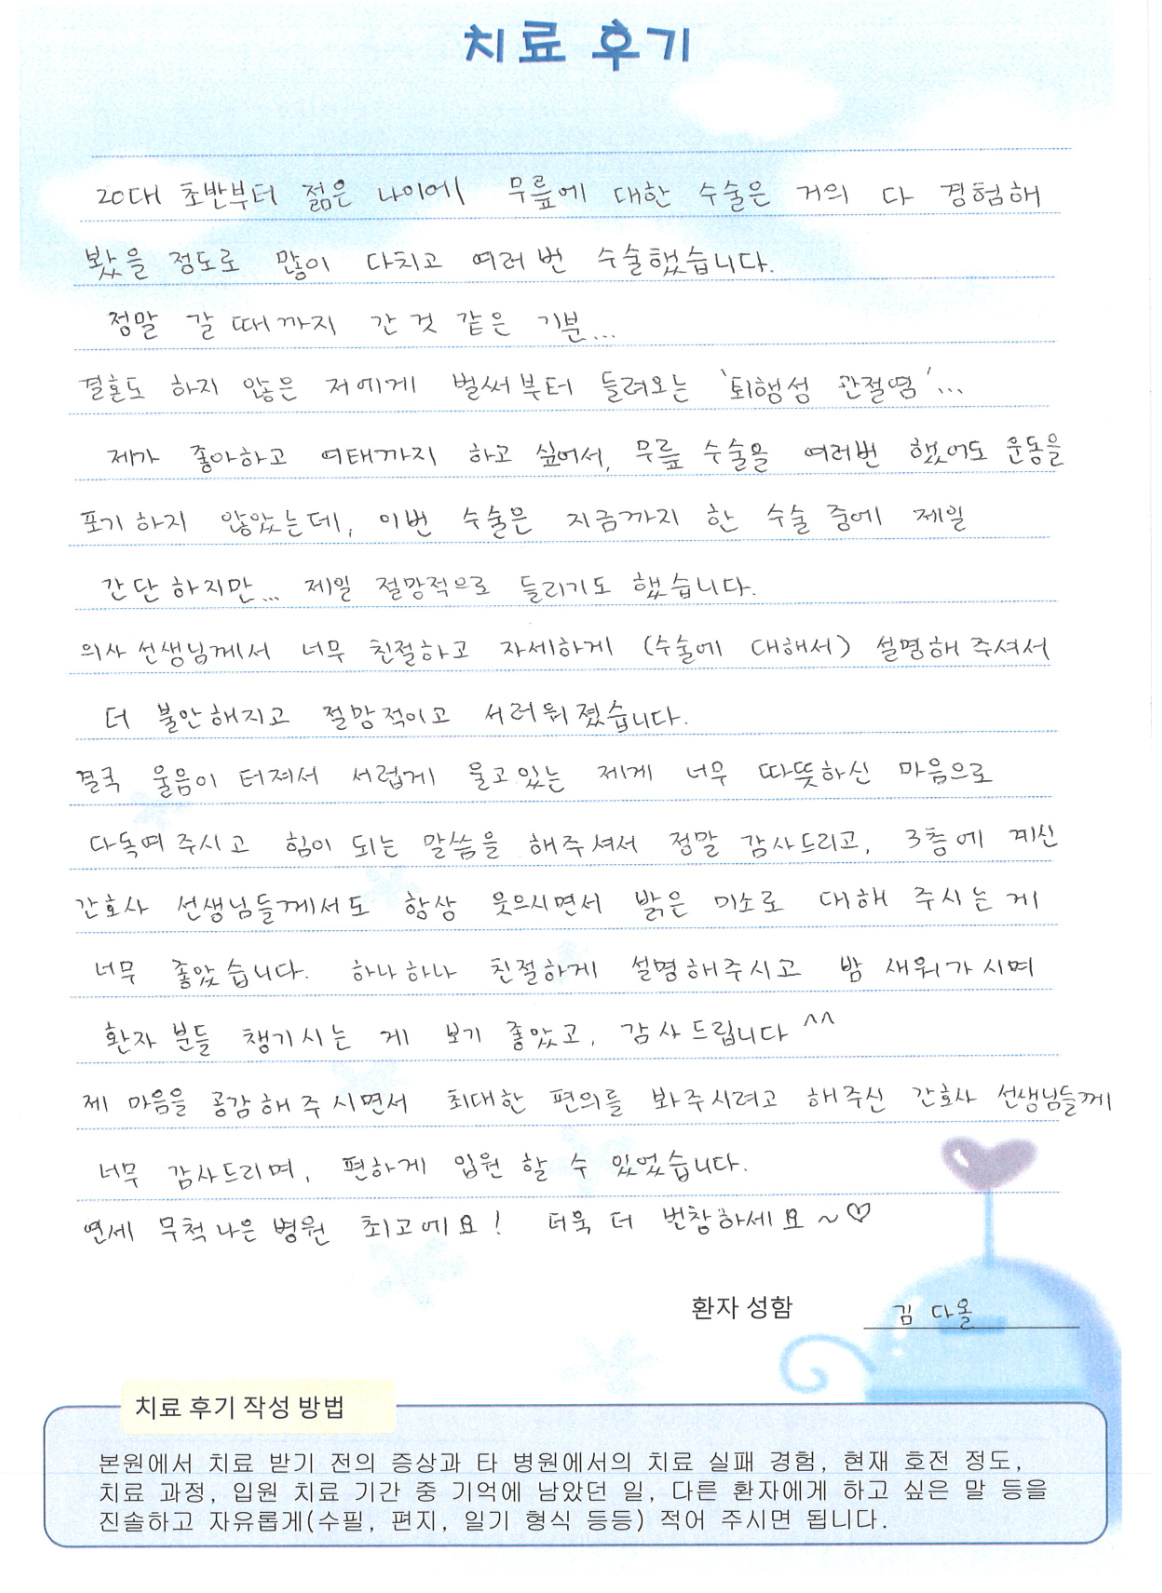 치료 후기
20대 초반부터 젊은 나이에 무릎에 대한 수술은 거의 다 경험해
봤을 정도로 많이 다치고 여러번 수술했습니다.
정말 갈 때까지 간 것 같은 기분...
결혼도 하지 않은 저에게 벌써부터 들려오는 '퇴행성 관절염'...
제가 좋아하고 여태까지 하고 싶어서, 무릎 수술을 여러번 했어도 운동을
포기하지 않았는데, 이번 수술은 지금까지 한 수술 중에 제일
간단하지만... 제일 절망적으로 들리기도 했습니다.
의사 선생님께서 너무 친절하고 자세하게 (수술에 대해서) 설명해 주셔서
더 불안해지고 절망적이고 서러워졌습니다.
결국 울음이 터져서 서럽게 울고있는 제게 너무 따뜻하신 마음으로
다독여 주시고 힘이 되는 말씀을 해주셔서 정말 감사드리고, 3층에 계신
간호사 선생님들께서도 항상 웃으시면서 밝은 미소로 대해 주시는 게
너무 좋았습니다. 하나하나 친절하게 설명해주시고 밤 새워가시며
환자 분들 챙기시는 게 보기 좋았고, 감사드립니다 ^^
제 마음을 공감해 주시면서 최대한 편의를 봐주시려고 해주신 간호사 선생님들께
너무 감사드리며, 편하게 입원 할 수 있었습니다.
연세 무척나은병원 최고예요! 더욱 더 번창하세요~♡
환자 성함 김 다올
치료 후기 작성 방법
본원에서 치료 받기 전의 증상과 타 병원에서의 치료 실패 경험, 현재 호전 정도,
치료 과정, 입원 치료 기간 중 기억에 남았던 일, 다른 환자에게 하고 싶은 말 등을
진솔하고 자유롭게(수필, 편지, 일기 형식 등등) 적어 주시면 됩니다.